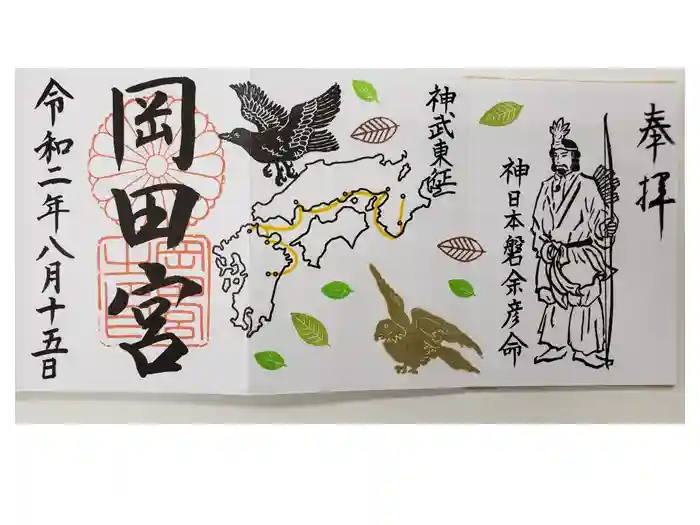 奉拝
神日本磐余彦命
神武東征
岡田宮
令和二年八月十五日